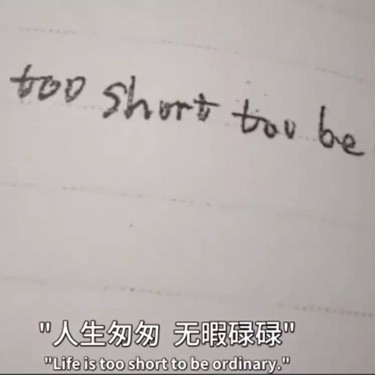 too short too be
"人生匆匆 无暇碌碌"
"Life is too short to be ordinary."